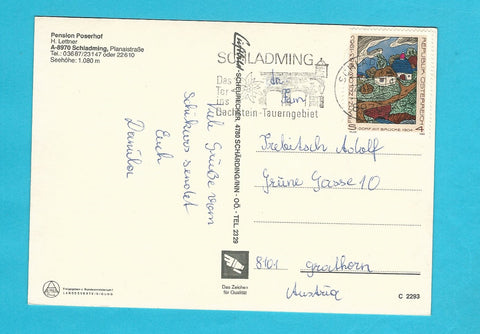 Pension Poserhof
H. Lettner
A-8970 Schladming, Planaistraße
Tel.: 03687/23147 oder 22610
Seehöhe: 1.080 m
SCHLADMING
Das
Tor
ins
Dachstein-Tauerngebiet
REPUBLIK ÖSTERREICH
DORF MIT BRÜCKE 1904
4
An
Fam
Trebitsch Adolf
Grüne Gasse 10
8101 Gratkorn
Austria
Viele Grüße vom
Schikurs sendet
Euch
Danila
SCHÄRDING/INN - OÖ. - TEL. 2329
Das Zeichen
für Qualität
C 2293